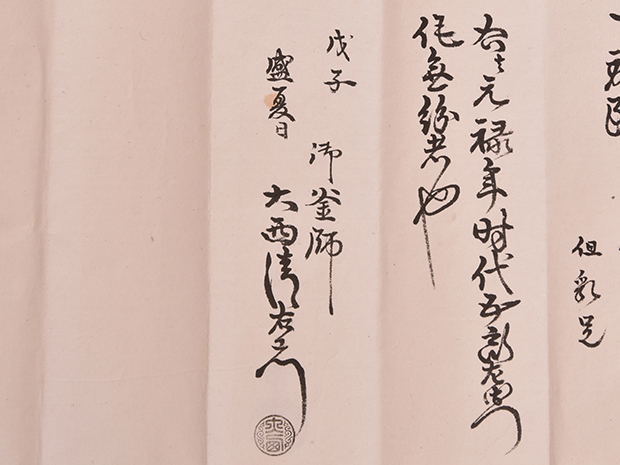 但乳足
右者元禄年時代五郎左衛門
作無紛者也
戊子
盛夏日
御釜師
大西清右衛門